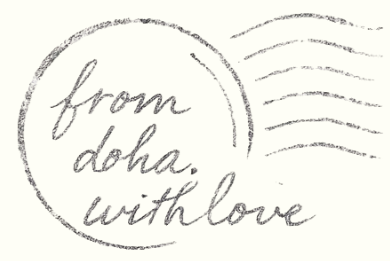 from
doha.
with love